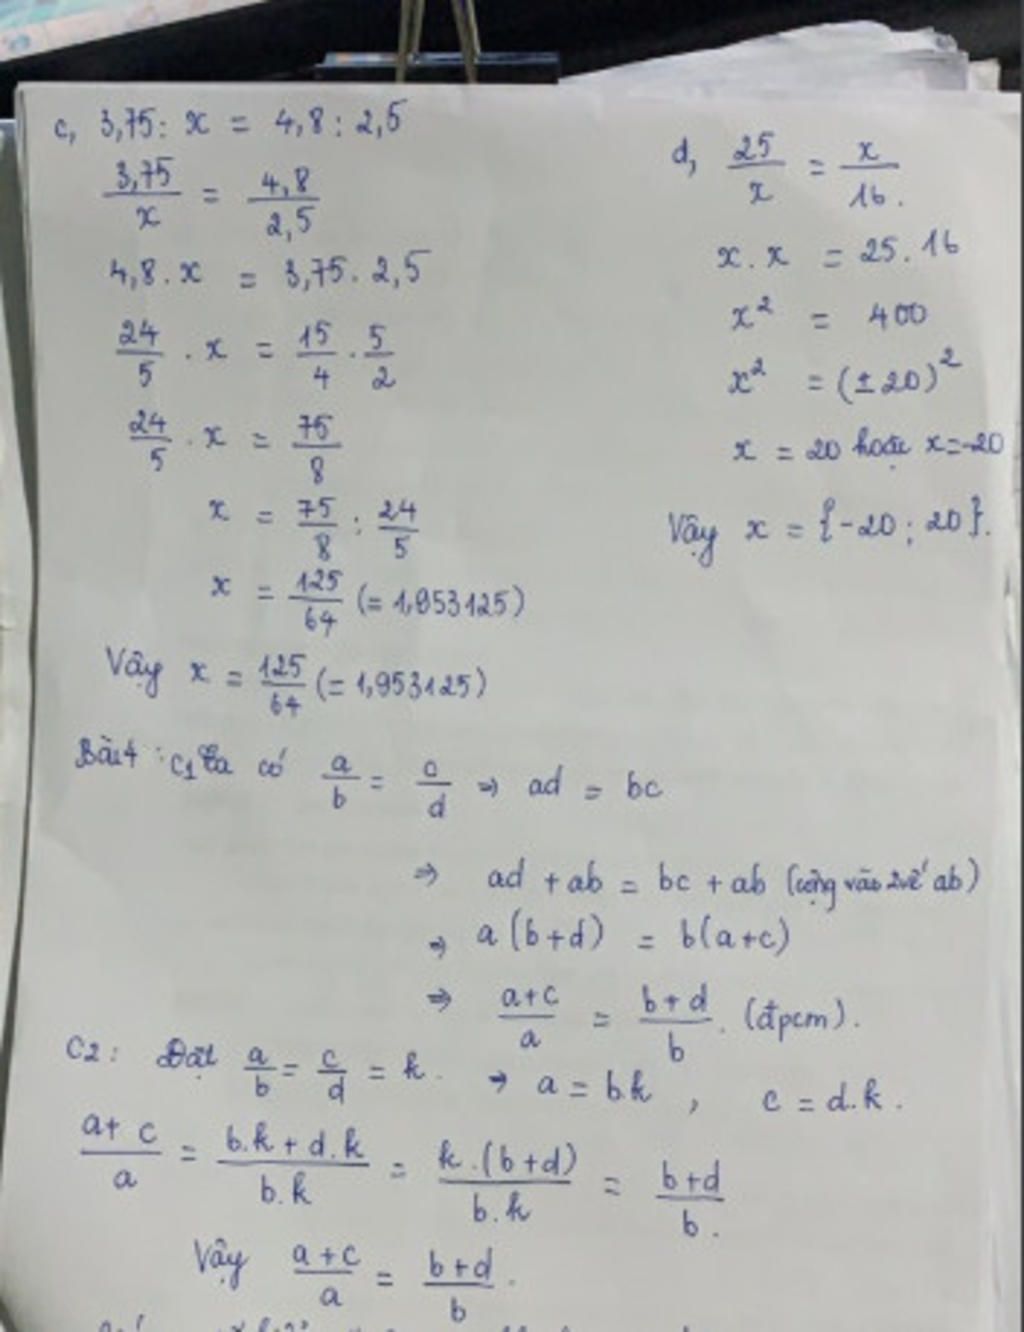 c, 3,75 : x = 4,8 : 2,5
3,75/x = 4,8/2,5
4,8 . x = 3,75 . 2,5
24/5 . x = 15/4 . 5/2
24/5 . x = 75/8
x = 75/8 : 24/5
x = 125/64 (= 1,953125)
Vậy x = 125/64 (= 1,953125)
d, 25/x = x/16.
x . x = 25 . 16
x² = 400
x² = (±20)²
x = 20 hoặc x = -20
Vậy x = {-20 ; 20}.
Bài 4 : C1 Ta có a/b = c/d ⇒ ad = bc
⇒ ad + ab = bc + ab (cộng vào 2 vế ab)
⇒ a(b+d) = b(a+c)
⇒ a+c/a = b+d/b . (đpcm).
C2 : Đặt a/b = c/d = k. ⇒ a = b.k , c = d.k .
a+c/a = b.k + d.k/b.k = k.(b+d)/b.k = b+d/b.
Vậy a+c/a = b+d/b .